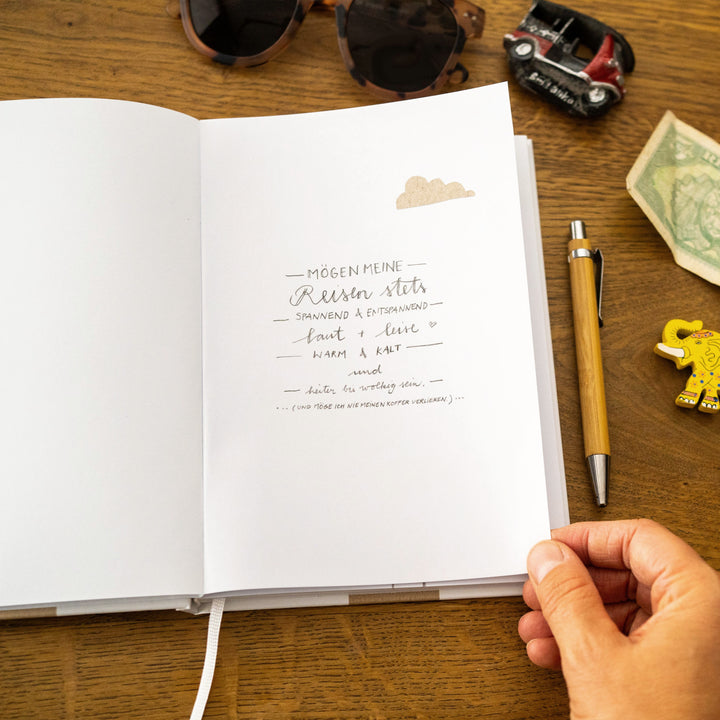 MÖGEN MEINE
Reisen stets
SPANNEND & ENTSPANNEND
laut + leise ♡
WARM & KALT
und
heiter bis wolkig sein.
... (UND MÖGE ICH NIE MEINEN KOFFER VERLIEREN.) ...